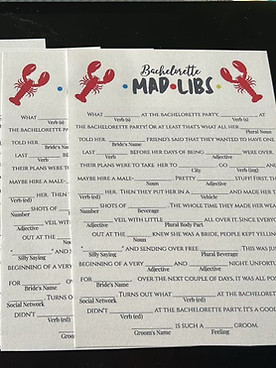 Bachelorette
MAD•LIBS
WHAT ________ AT THE BACHELORETTE PARTY, ________ AT
Verb (s) Verb (s)
THE BACHELORETTE PARTY! OR AT LEAST THAT'S WHAT ALL HER ________
Plural Noun
TOLD HER. ________ FRIENDS SAID THEY WANTED TO HAVE ONE
Bride's Name
LAST ________ BEFORE HER DAYS OF BEING ________ WERE OVER.
Verb Adjective
THEIR PLANS WERE TO TAKE HER TO ________ GO ________ AND
City Verb (ing)
MAYBE HIRE A MALE-________ PRETTY ________ STUFF! FIRST, THE
Verb Adjective
________ HER. THEN THEY PUT HER IN A ________ AND MADE HER
Verb (ed) Noun
________ SHOTS OF ________ THE WHOLE TIME THEY MADE HER WEAR
Number Beverage
________ VEIL WITH LITTLE ________ ALL OVER IT. SINCE EVERY
Adjective Plural Body Part
OUT AT THE ________ KNEW SHE WAS A BRIDE, PEOPLE KEPT YELLING
Noun
"________" AND SENDING OVER FREE ________ THIS WAS JUST
Silly Saying Plural Beverage
BEGINNING OF A VERY ________ AND ________ NIGHT. UNFORTUN
Adjective Adjective
FOR ________ OVER THE NEXT COUPLE OF DAYS, IT WAS ALL POS
Bride's Name
________ TURNS OUT WHAT ________ AT THE BACHELORE
Social Network Verb (ed)
DIDN'T ________ AT THE BACHELORETTE PARTY. IT'S A GOOD
Verb (ed)
________ IS SUCH A ________ GROOM.
Groom's Name Feeling